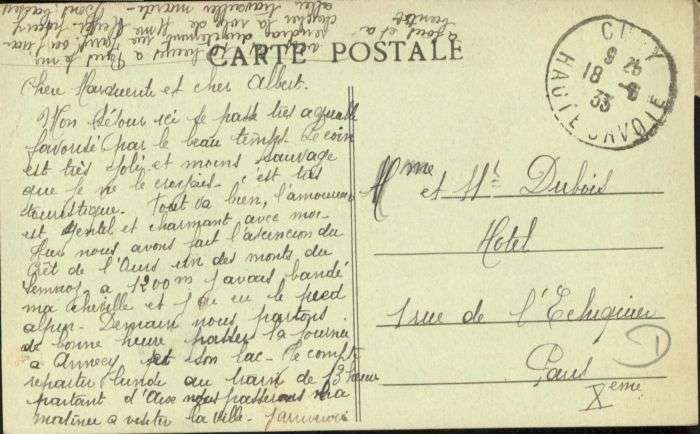 CARTE POSTALE
Chère Marguerite et cher Albert.
Mon séjour ici se passe très agréable
favorisé par le beau temps. Le coin
est très joli et moins sauvage
que je ne le croyais. c'est très
touristique. Tout va bien, l'amoureux
est gentil et charmant avec moi.
Hier nous avons fait l'ascension du
Crêt de l'Aurs un des monts du
Semnoz, a 1200m j'avais bandé
ma cheville et j'ai eu le pied
alpin. Demain nous partons
de bonne heure passer la journée
a Annecy et son lac. Je compte
repartir lundi au train de 13 heures
partant d'Aix nous passerons la
matinée a visiter la ville. J'arriverai
a Paris
rue
CRUSY
HAUTE SAVOIE
9 25
18 - 8
33
Mme et Mr Dubois
Hotel
1 rue de l'Echiquier
Paris
Xeme
1